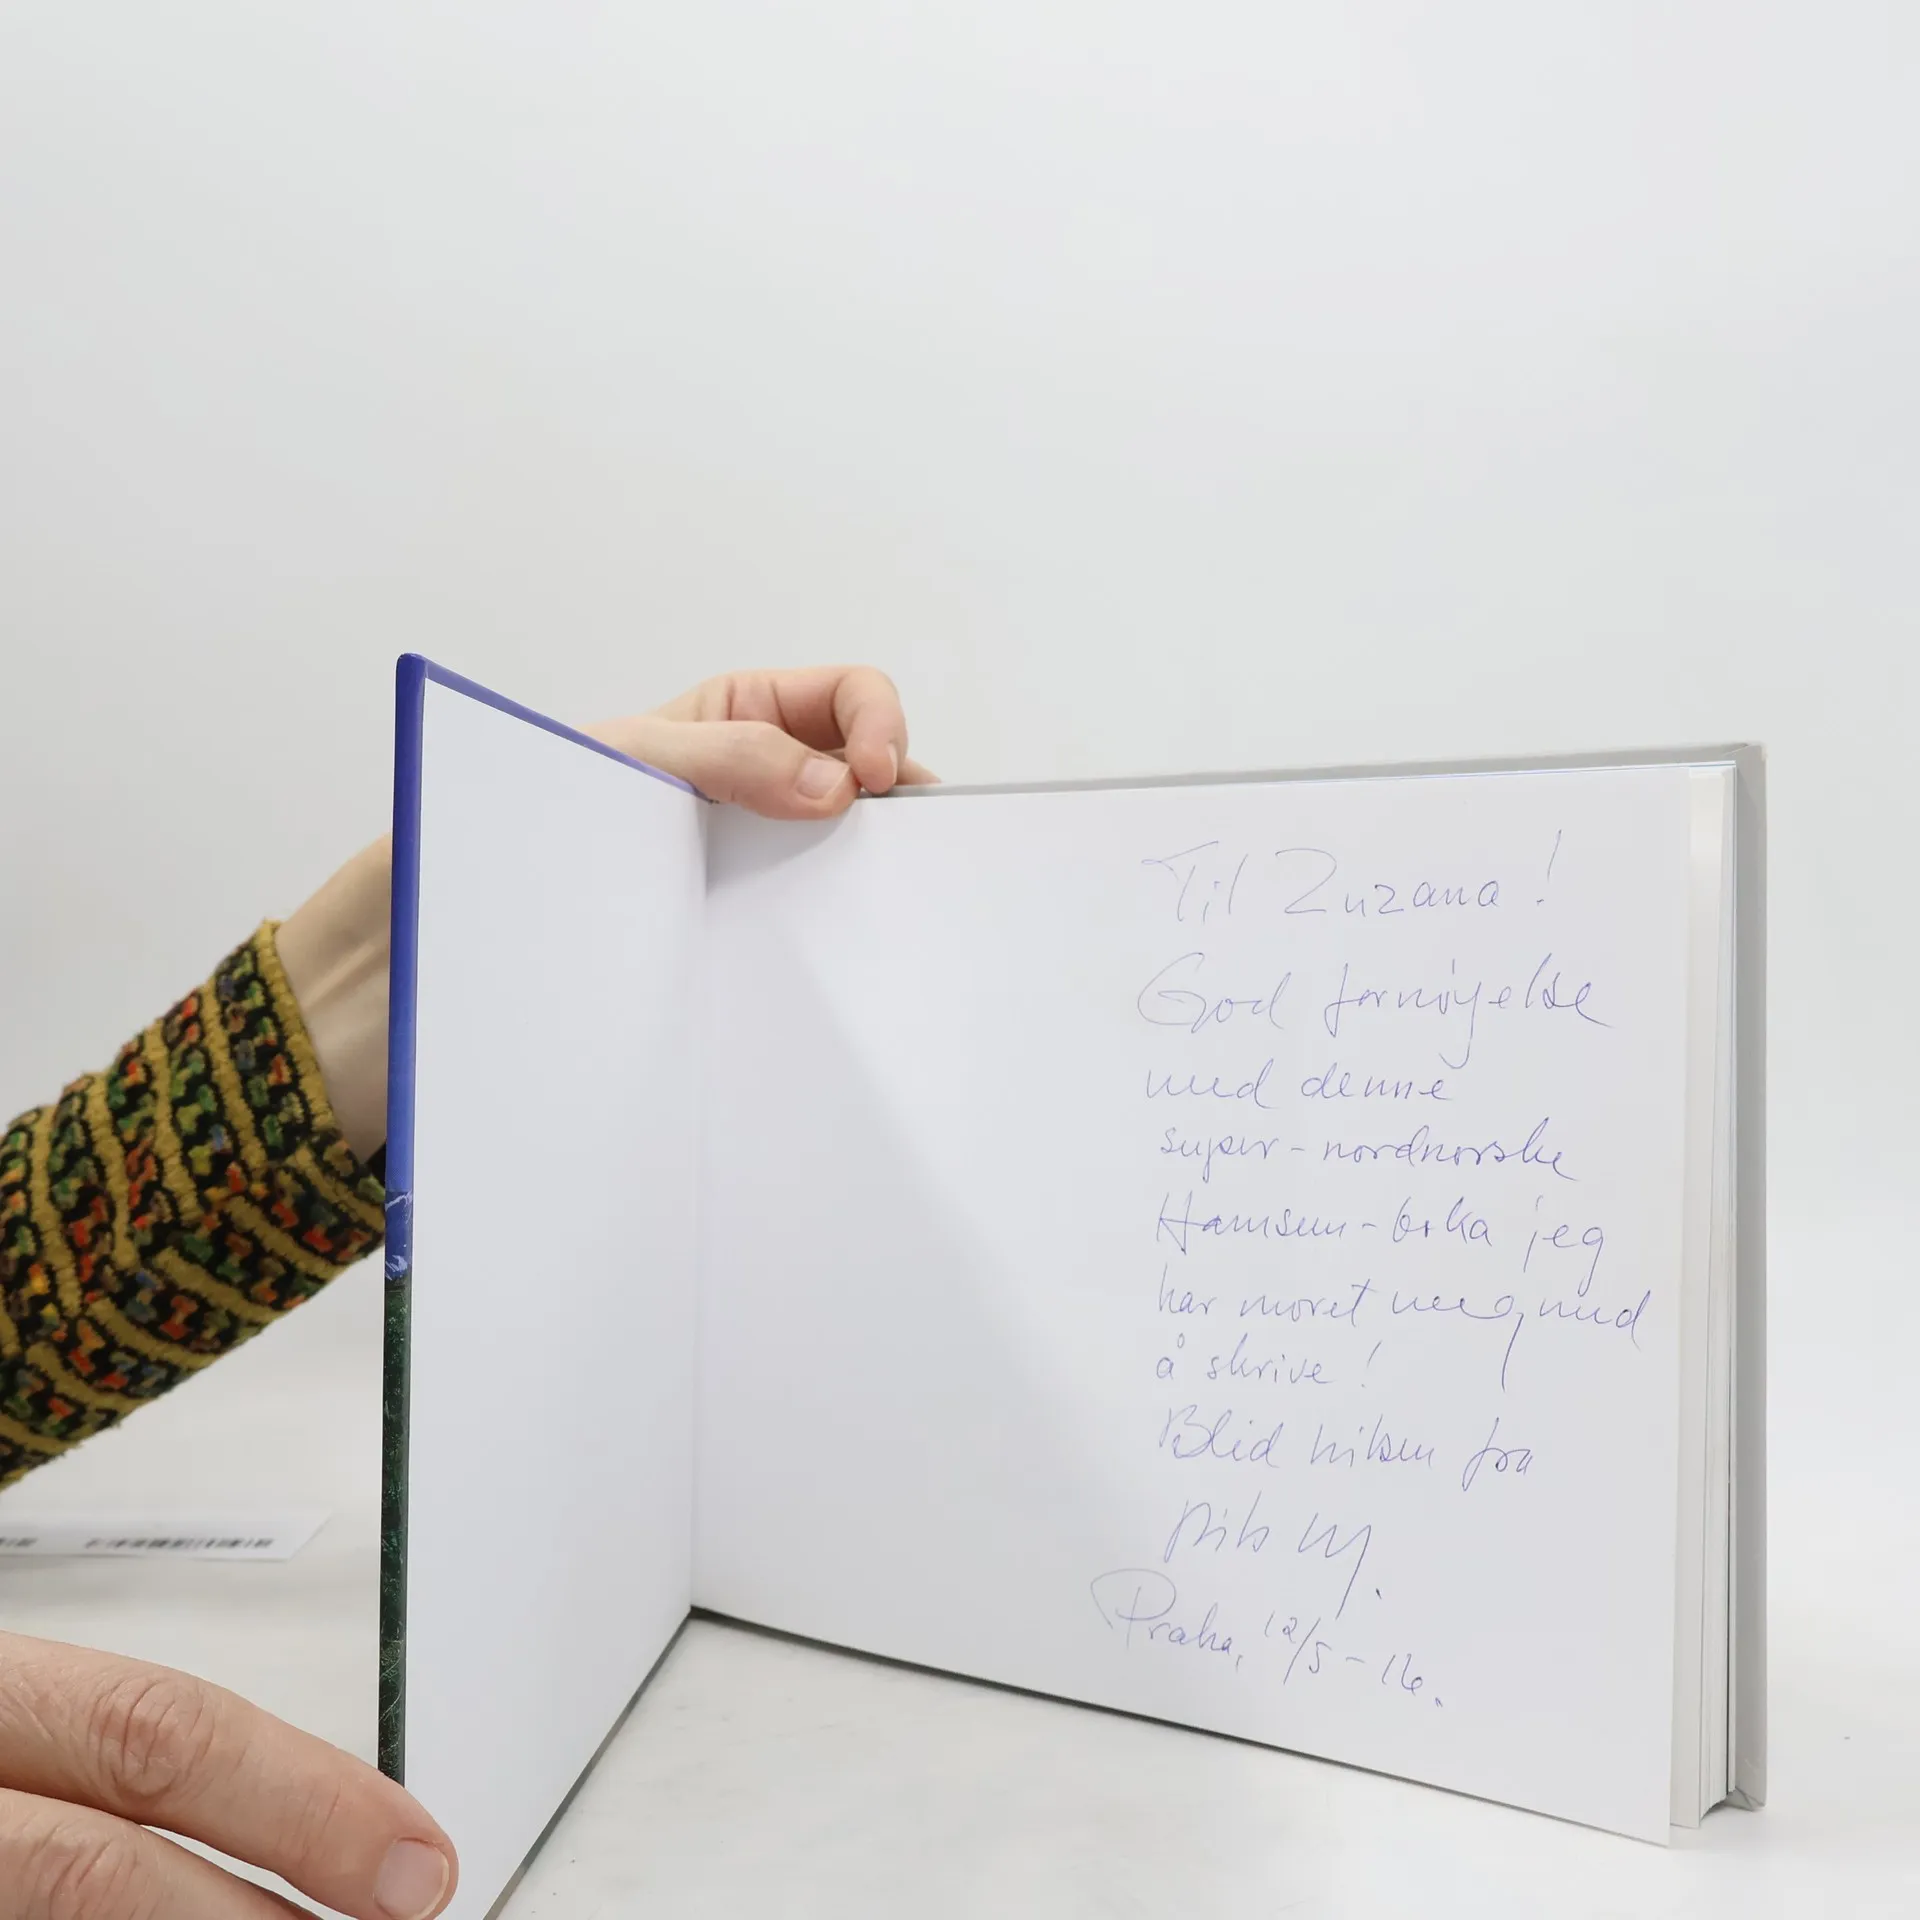 Til Zuzana!
God fornøyelse
med denne
super-nordnorske
Hamsun-boka jeg
har moret meg med
å skrive!
Blid hilsen fra
Nils M.
Praha, 12/5-16.